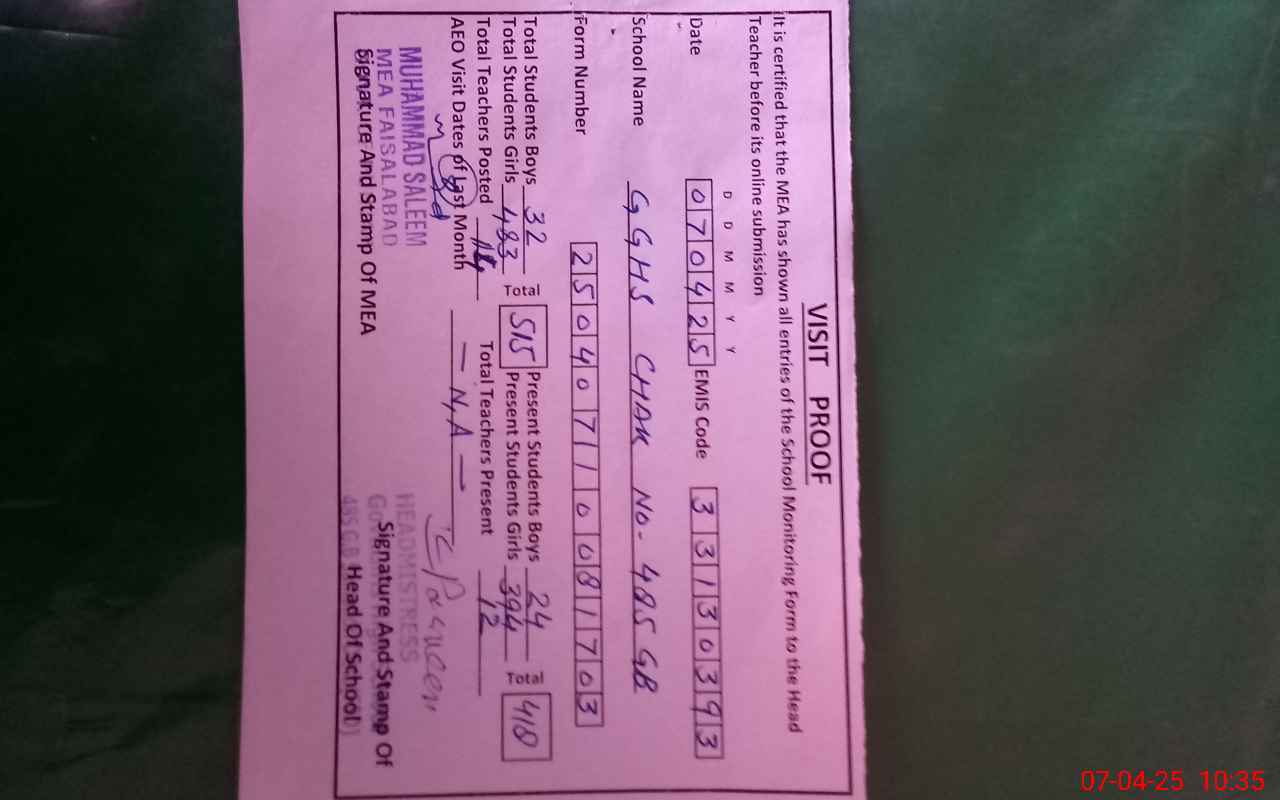 VISIT PROOF
It is certified that the MEA has shown all entries of the School Monitoring Form to the Head
Teacher before its online submission
D D M M Y Y
Date 070425 EMIS Code 33130393
School Name GGHS CHAK NO- 485 GB
Form Number 25040710081703
Total Students Boys 32 Present Students Boys 24
Total Students Girls 483 Total 515 Present Students Girls 394 Total 418
Total Teachers Posted 14 Total Teachers Present 12
AEO Visit Dates of Last Month — N,A —
MUHAMMAD SALEEM
MEA FAISALABAD
Signature And Stamp Of MEA
HEADMISTRESS
Signature And Stamp Of
485 G.B Head Of School
07-04-25 10:35